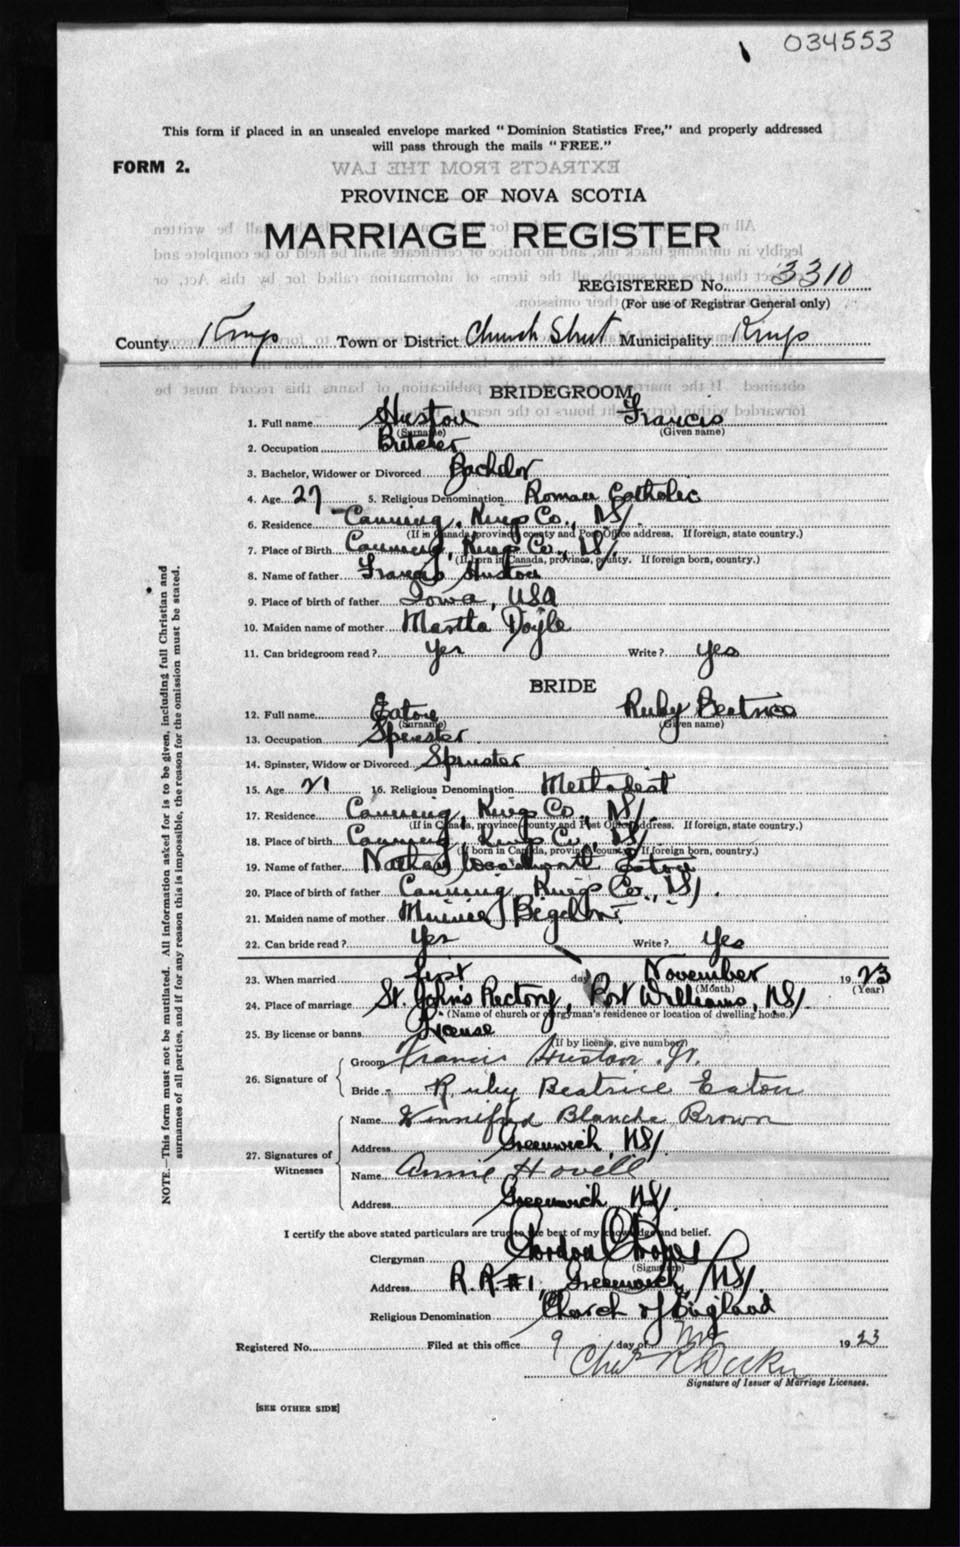 034553
This form if placed in an unsealed envelope marked "Dominion Statistics Free," and properly addressed
will pass through the mails "FREE."
FORM 2.
EXTRACTS FROM THE LAW
PROVINCE OF NOVA SCOTIA
MARRIAGE REGISTER
REGISTERED No. 3310
(For use of Registrar General only)
County Kings Town or District Church Street Municipality Kings
BRIDEGROOM
1. Full name Huston Francis
(Surname) (Given name)
2. Occupation Butcher
3. Bachelor, Widower or Divorced Bachelor
4. Age 27 5. Religious Denomination Roman Catholic
6. Residence Canning, Kings Co., NS/
(If in Canada, province, county and Post Office address. If foreign, state country.)
7. Place of Birth Canning, Kings Co., NS/
(If born in Canada, province, county. If foreign born, country.)
8. Name of father Francis Huston
9. Place of birth of father Iowa, USA
10. Maiden name of mother Martha Doyle
11. Can bridegroom read? Yes Write? Yes
BRIDE
12. Full name Eaton Ruby Beatrice
(Surname) (Given name)
13. Occupation Spinster
14. Spinster, Widow or Divorced Spinster
15. Age 21 16. Religious Denomination Methodist
17. Residence Canning, Kings Co., NS/
(If in Canada, province, county and Post Office address. If foreign, state country.)
18. Place of birth Canning, Kings Co., NS/
(If born in Canada, province, county. If foreign born, country.)
19. Name of father Nathan Woodworth Eaton
20. Place of birth of father Canning Kings Co., NS/.
21. Maiden name of mother Minnie Bigelow
22. Can bride read? Yes Write? Yes
23. When married first day November 1923
(Month) (Year)
24. Place of marriage St. John's Rectory, Port Williams, NS/
(Name of church or clergyman's residence or location of dwelling house.)
25. By license or banns License
(If by license, give number)
26. Signature of Groom Francis Huston Jr.
Bride Ruby Beatrice Eaton
27. Signatures of Witnesses Name Winnifred Blanche Brown
Address Greenwich, NS/
Name Annie Hovell
Address Greenwich NS/
I certify the above stated particulars are true to the best of my knowledge and belief.
Clergyman Gordon
(Signature)
Address R.R.#1, Greenwich, NS/
Religious Denomination Church of England
Registered No. Filed at this office 9 day of Nov 1923
Chas R
Signature of Issuer of Marriage Licenses.
[SEE OTHER SIDE]
NOTE.—This form must not be mutilated. All information asked for is to be given, including full Christian and
surnames of all parties, and if for any reason this is impossible, the reason for the omission must be stated.